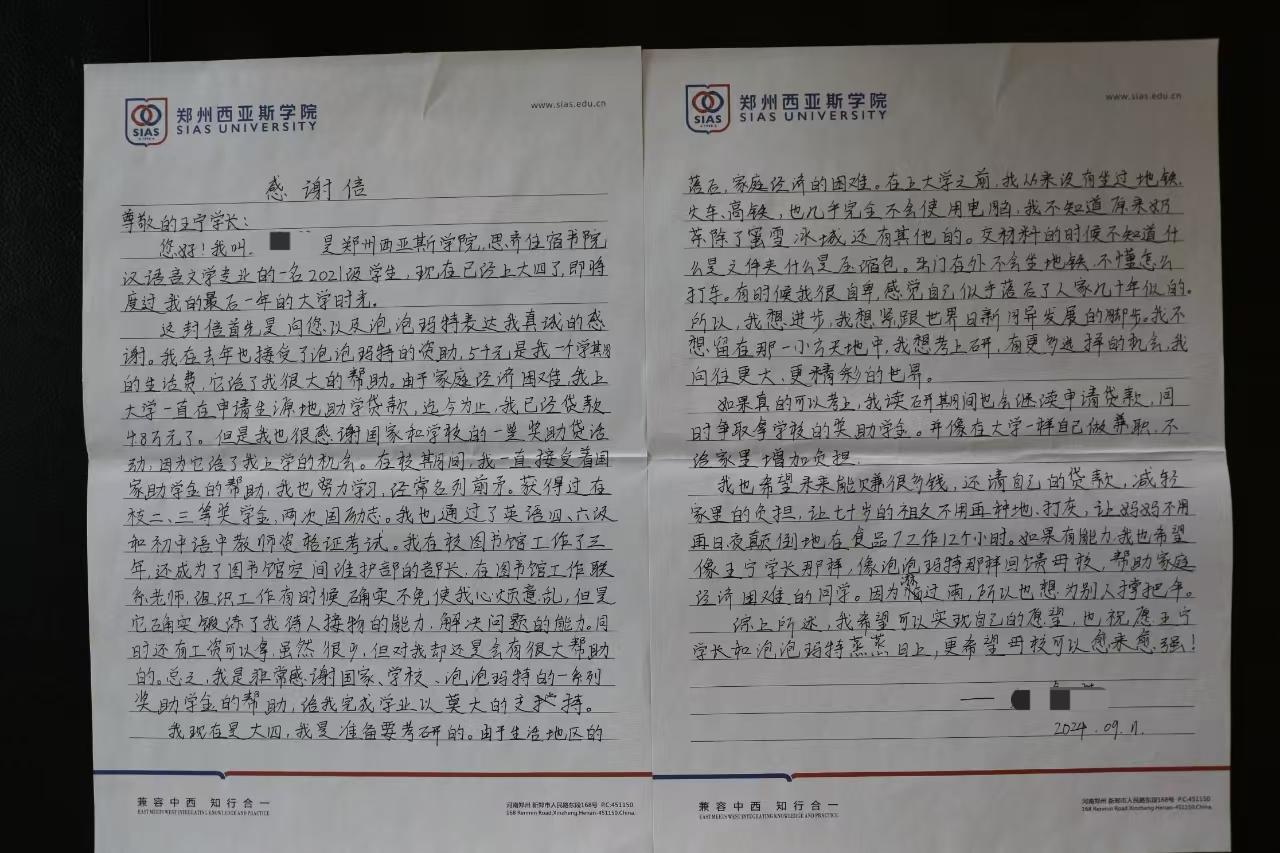 郑州西亚斯学院
SIAS UNIVERSITY
SIAS
www.sias.edu.cn
感谢信
尊敬的王宁学长：
您好！我叫 是郑州西亚斯学院，思齐住宿书院
汉语言文学专业的一名2021级学生，现在已经上大四了，即将
度过我的最后一年的大学时光。
这封信首先是向您以及泡泡玛特表达我真诚的感
谢。我在去年也接受了泡泡玛特的资助，5千元是我一个学期
的生活费，它给了我很大的帮助。由于家庭经济困难，我上
大学一直在申请生源地助学贷款，迄今为止，我已经贷款
4.8万元了。但是我也很感谢国家和学校的一些奖助贷活
动，因为它给了我上学的机会。在校期间，我一直接受着国
家助学金的帮助，我也努力学习，经常名列前茅。获得过在
校二、三等奖学金，两次国励志。我也通过了英语四、六级
和初中语中教师资格证考试。我在校图书馆工作了三
年，还成为了图书馆空间维护部的部长，在图书馆工作联
系老师，组织工作有时候确实不免使我心烦意乱，但是
它确实锻炼了我待人接物的能力，解决问题的能力。同
时还有工资可以拿，虽然很少，但对我却还是会有很大帮助
的。总之，我是非常感谢国家、学校、泡泡玛特的一系列
奖助学金的帮助，给我完成学业以莫大的支持。
我现在是大四，我是准备要考研的。由于生活地区的
兼容中西 知行合一
EAST MEETS WEST INTEGRATING KNOWLEDGE AND PRACTICE
河南郑州 新郑市人民路东段168号 P.C:451150
168 Renmin Road,Xinzheng,Henan-451150,China.
郑州西亚斯学院
SIAS UNIVERSITY
SIAS
www.sias.edu.cn
落后，家庭经济的困难。在上大学之前，我从来没有坐过地铁、
火车、高铁，也几乎完全不会使用电脑，我不知道原来奶
茶除了蜜雪冰城，还有其他的。交材料的时候不知道什
么是文件夹什么是压缩包。出门在外不会坐地铁，不懂怎么
打车。有时候我很自卑，感觉自己似乎落后了人家几十年似的。
所以，我想进步，我想紧跟世界日新月异发展的脚步。我不
想留在那一小方天地中，我想考上研，有更多选择的机会，我
向往更大、更精彩的世界。
如果真的可以考上，我读研期间也会继续申请贷款，同
时争取拿学校的奖助学金。并像在大学一样自己做兼职，不
给家里增加负担。
我也希望未来能赚很多钱，还清自己的贷款，减轻
家里的负担，让七十岁的祖父不用再种地、打灰，让妈妈不用
再日夜颠倒地在食品厂工作12个小时。如果有能力，我也希望
像王宁学长那样，像泡泡玛特那样回馈母校，帮助家庭
经济困难的同学。因为淋过雨，所以也想为别人撑把伞。
综上所述，我希望可以实现自己的愿望，也祝愿王宁
学长和泡泡玛特蒸蒸日上，更希望母校可以愈来愈强！
——
2024.09.11.
兼容中西 知行合一
EAST MEETS WEST INTEGRATING KNOWLEDGE AND PRACTICE
河南郑州 新郑市人民路东段168号 P.C:451150
168 Renmin Road,Xinzheng,Henan-451150,China.